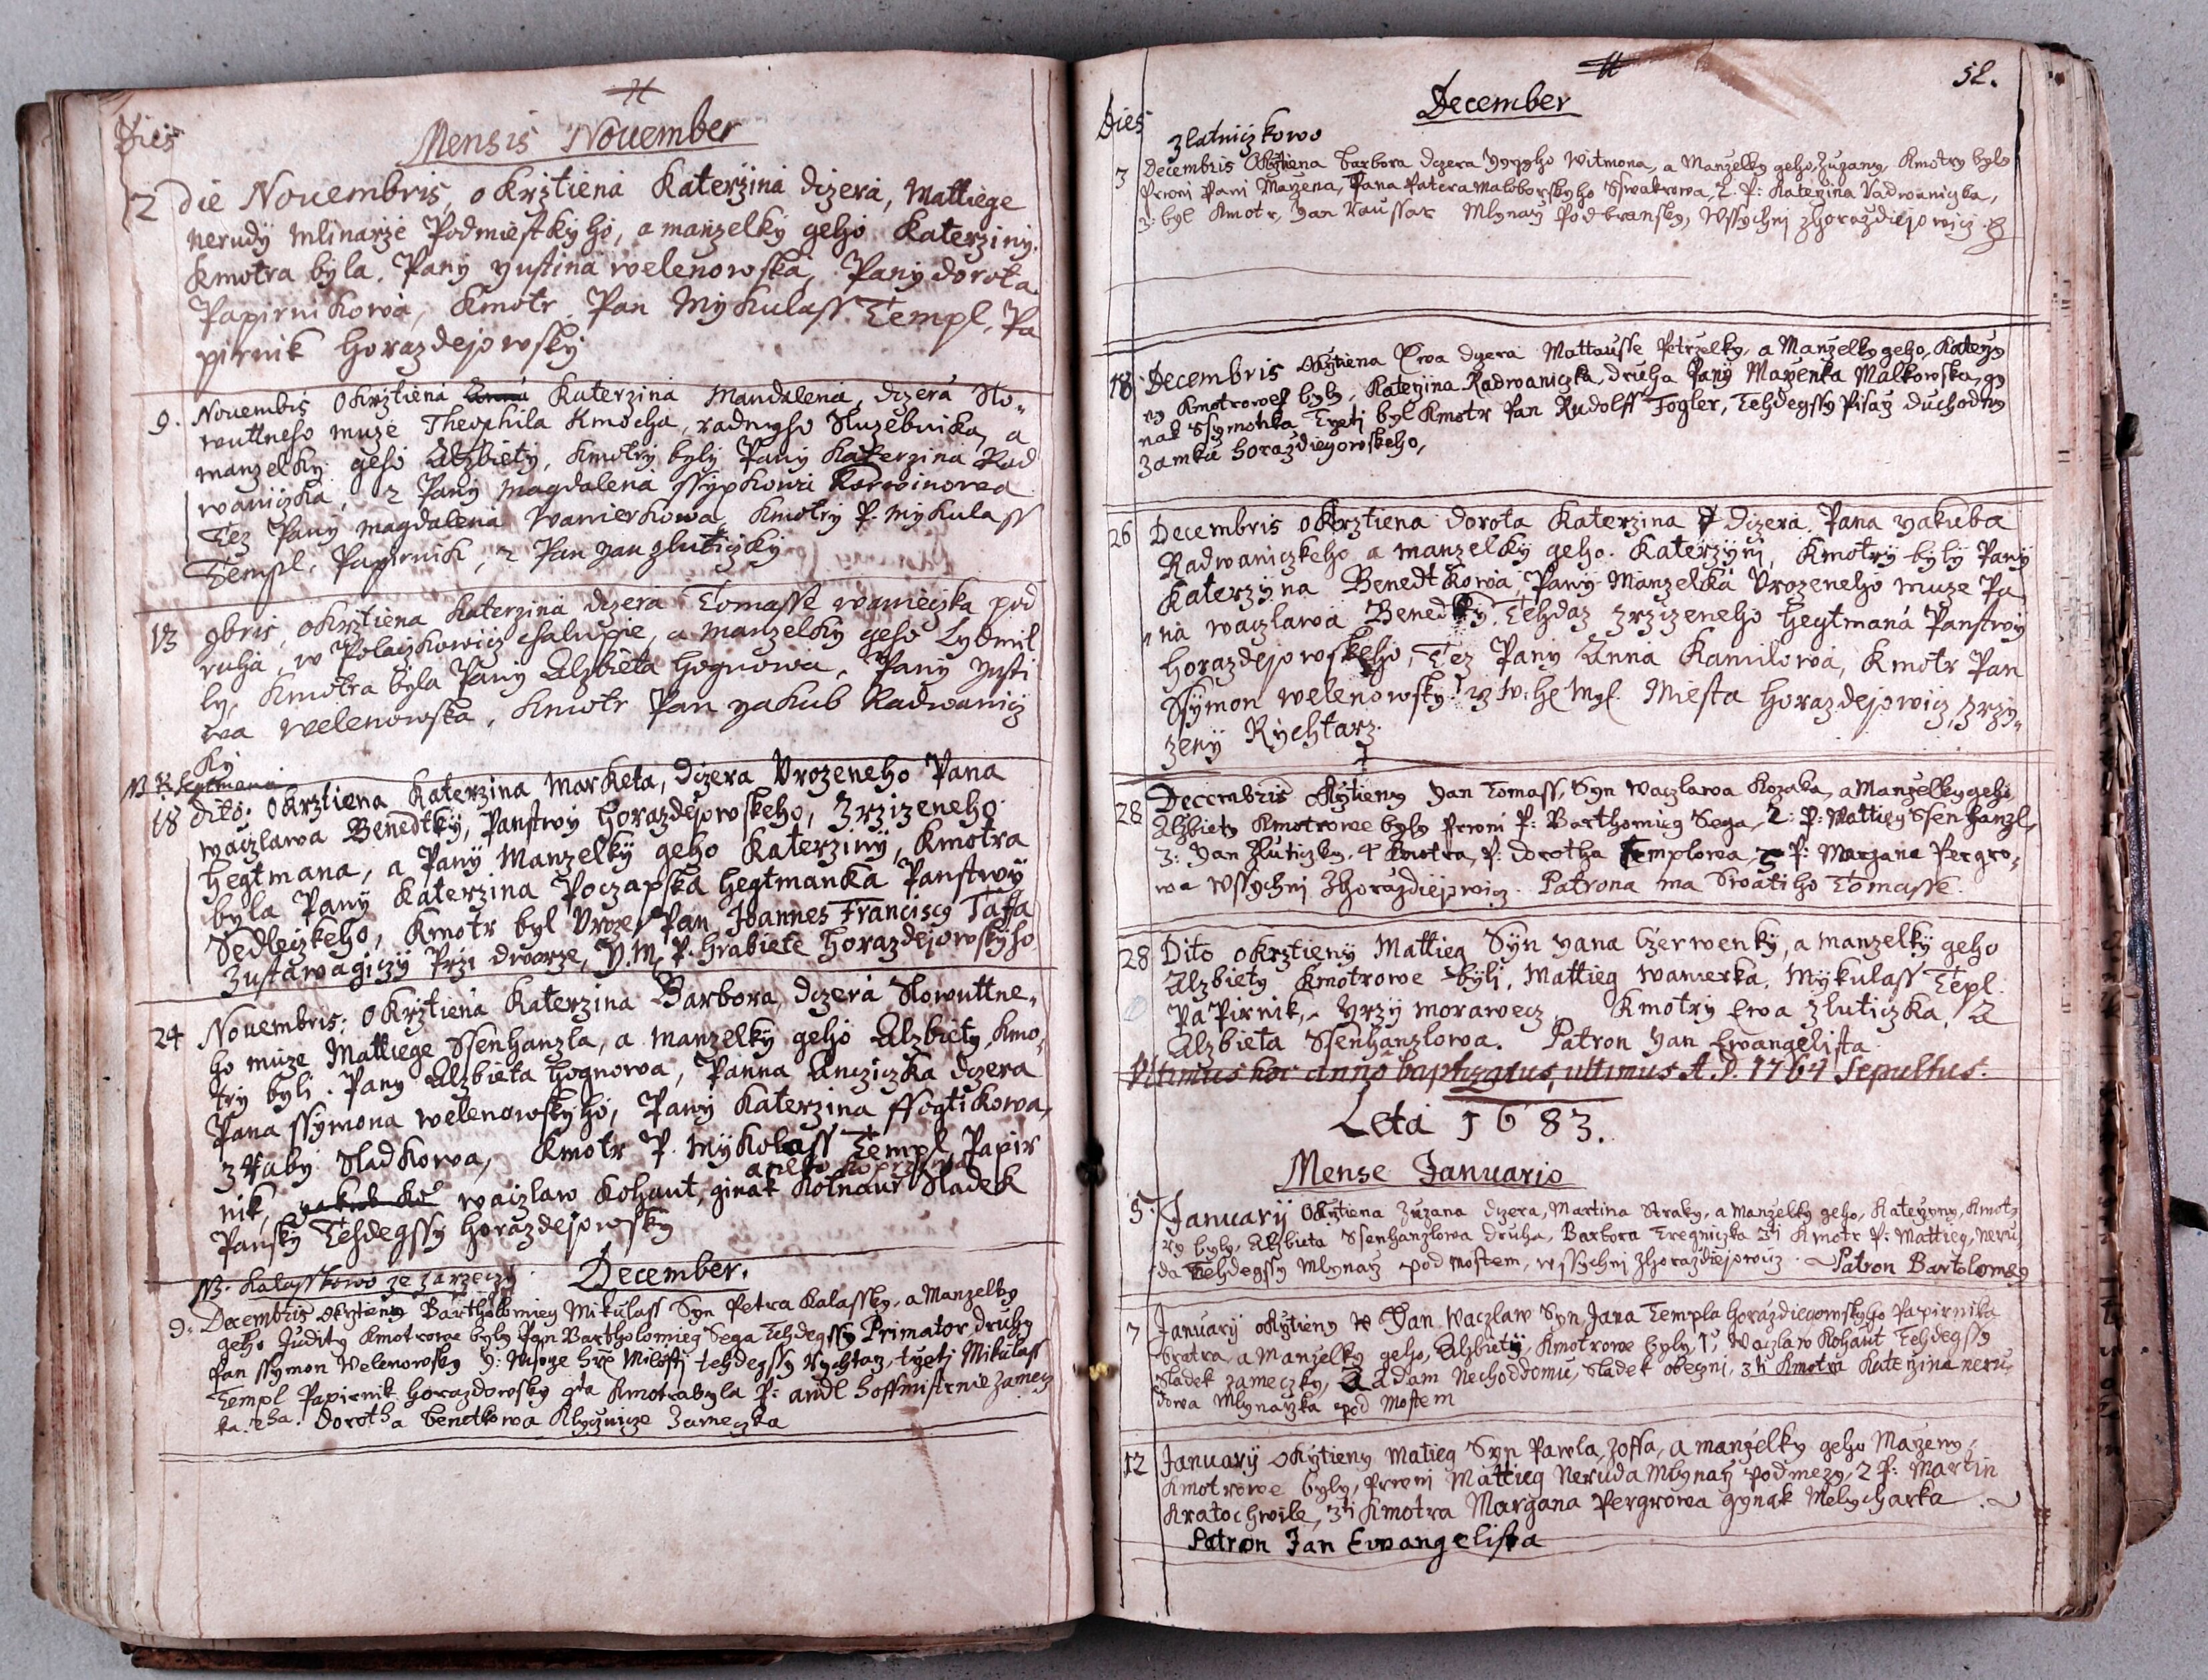 Dies
Mensis Nouember
2 die Nouembris, oKrztiena Katerzina dczera, Mattiege
nerudÿ mlinarze Podmiestkÿho, a manzelkÿ geho Katerzinÿ.
Kmotra bÿla. Panÿ yustina welenowska, Panÿ dorota
Papirnikowa, Kmotr Pan Mÿkulass. Templ, Pa
pirnik horazdejowskÿ
9. Nouembris oKrztiena Katerzina Mandalena, dczera Slo-
wuttneho muze Theophila Kmocha, radnyho Sluzebnika, a
manzelkÿ geho Alzbietÿ, Kmotrÿ bylÿ Panÿ Katerzina Rad
waniczka, 2 Panÿ Magdalena ssÿpkowa Korwinowa
Tez Panÿ magdalena Wanierkowa, Kmotrÿ P. mykulass
Templ, Papirnik, 2 Pan yan zluticzkÿ
13 9bris, oKrztiena Katerzina dczera Tomasse wanieczka pod
ruha, w Polaczkowicz chalupie, a manzelkÿ geho Lydmil
ly, Kmotra bÿla Panÿ Alzbieta hognowa, Panÿ yusti
na welenowska, Kmotr Pan yakub Radwanicz
kÿ
18 dito: oKrztiena Katerzina Marketa, dczera Vrozeneho Pana
waczlawa Benedtkÿ, Panstwÿ horazdejowskeho, Zrzizeneho
hegtmana, a Panÿ Manzelkÿ geho Katerzinÿ, Kmotra
byla Panÿ Katerzina Poczapska hegtmanka Panstwÿ
Sedleczkeho, Kmotr byl Vroze Pan Joannes Francisco Taffa
Zustawagiczÿ Przi dworze, Y. M. P. hrabiete horazdejowskÿho
24 Nouembris: oKrztiena Katerzina Barbora, dczera Slowuttne-
ho muze Mattiege Ssenhanzla, a manzelkÿ geho Alzbietÿ, Kmo-
trÿ bÿli. Panÿ Alzbieta hognowa, Panna Ancziczka dczera
Pana ssymona welenowskÿho, Panÿ Katerzina ffogtikowa,
z Rabÿ Sladkowa, Kmotr P. mÿkolass Templ, Papir
aneb
nik, waczlaw Kohaut, ginak Kolnaur Sladek
Panskÿ Tehdegssÿ horazdejowskÿ
NB. Kalasskowo ze zarzeczÿ December.
9. Decembris okrztieny Bartholomieg Mikulass Syn Petra Kalassky, a Manzelky
geho Judity Kmotrowe byly Pan Bartholomieg Sega Tehdegssy Primator druhy
Pan ssymon Welenowsky Milosti tehdegssy Rychtarz, trzeti Mikulass
Templ Papirnik horazdowsky Kmotra byla P: andl hoffmistrnie zamecz
ka. dorotha benetkowa Klycznicze zameczka
52.
Dies December
zlatniczkowo
3 Decembris okrztiena barbora dczera Witmona, a Manzelky geho Zuzany, Kmotry byly
Prwni Pani Marzena, Pana Patera Maloborskyho Sswakrowa, 2. P: Katerzina Radwaniczka,
3. byl Kmotr, Yan Raussar Mlynarz Podbransky, Wssychni zhorazdiejowicz.
18. Decembris okrztiena Ewa dczera Mattausse Petrzelky, a Manzelky geho, Katerzy
ny Kmotrowe byly, Katerzina Radwaniczka, druha Panÿ Marzenka Malkowska, gy
nak Ssymonka Trzeti byl Kmotr Pan Rudolff Fogler, Tehdegssy Pisarz duchodny
Zamku horazdiegowskeho,
26 Decembris oKrztiena dorota Katerzina dczera. Pana yakuba
Radwaniczkeho a manzelkÿ geho. Katerzyni, Kmotrÿ bÿlÿ Panÿ
Katerzyna Benedtkowa Panÿ Manzelka Vrozeneho muze Pa
na waczlawa Benedtkÿ, Tehdaz zrzizeneho hegtmana Panstwÿ
horazdejowskeho, Tez Panÿ Anna Kamilowa, Kmotr Pan
Ssÿmon welenowskÿ Miesta horazdejowicz, zrzÿ-
zenÿ Rÿchtarz.
28 Decembris okrztieny Yan Tomass, Syn Waczlawa Kozaka, a Manzelky geho
Alzbiety Kmotrowe byly Prwni P: Barthomieg Sega, 2: P: Mattieg Ssenhanzl,
3: Yan Zluticzky, 4 Kmotra, P: dorotha Templowa, 5 P: Marzana Pergro-
wa Wssychni Zhorazdiejowicz. Patrona ma Swatiho Tomasse.
28 Dito oKrztienÿ Mattieg Sÿn yana Czerwenkÿ, a manzelkÿ geho
Alzbietÿ Kmotrowe bÿli, Mattieg wanierka, Mÿkulass Tepl.
PaPirnik, yrzÿ morawecz, Kmotrÿ Ewa zluticzka, A
Alzbieta Ssenhanzlowa. Patron Yan Ewangelista
Ultimus hoc anno baptizatus, ultimus A. D. 1764 Sepultus.
Leta 1683.
Mense Januario
5. Januarij okrztiena Zuzana dczera, Martina Straky, a Manzelky geho, Katerzyny, Kmot
ry byly, Alzbieta Ssenhanzlowa druha, Barbora Tregniczka 3ti Kmotr P: Mattieg, Neru
da Tehdegssy Mlynarz pod mostem, wssychni zhorazdiejowicz. Patron Bartolomeg
7 Januarij okrztieny Yan Waczlaw Syn Jana Templa horazdiegowskyho Papirnika
bratra, a Manzelky geho, Alzbietÿ, Kmotrowe byly, 1, Waczlaw Kohaut Tehdegssy
Sladek zameczky, 2 Adam Nechoddomu, Sladek obeczni, 3ti Kmotra Katerzina neru
dowa Mlynarzka pod Mostem
12 Januarij okrztieny Matieg Syn Pawla, Zoffa, a manzelky geho Marzeny,
Kmotrowe byly, Prwni Mattieg Neruda Mlynarz podmezy, 2 P: Martin
Kratochwile, 3ti Kmotra Margana Pergrowa gynak Melycharka.
Patron Jan Ewangelista